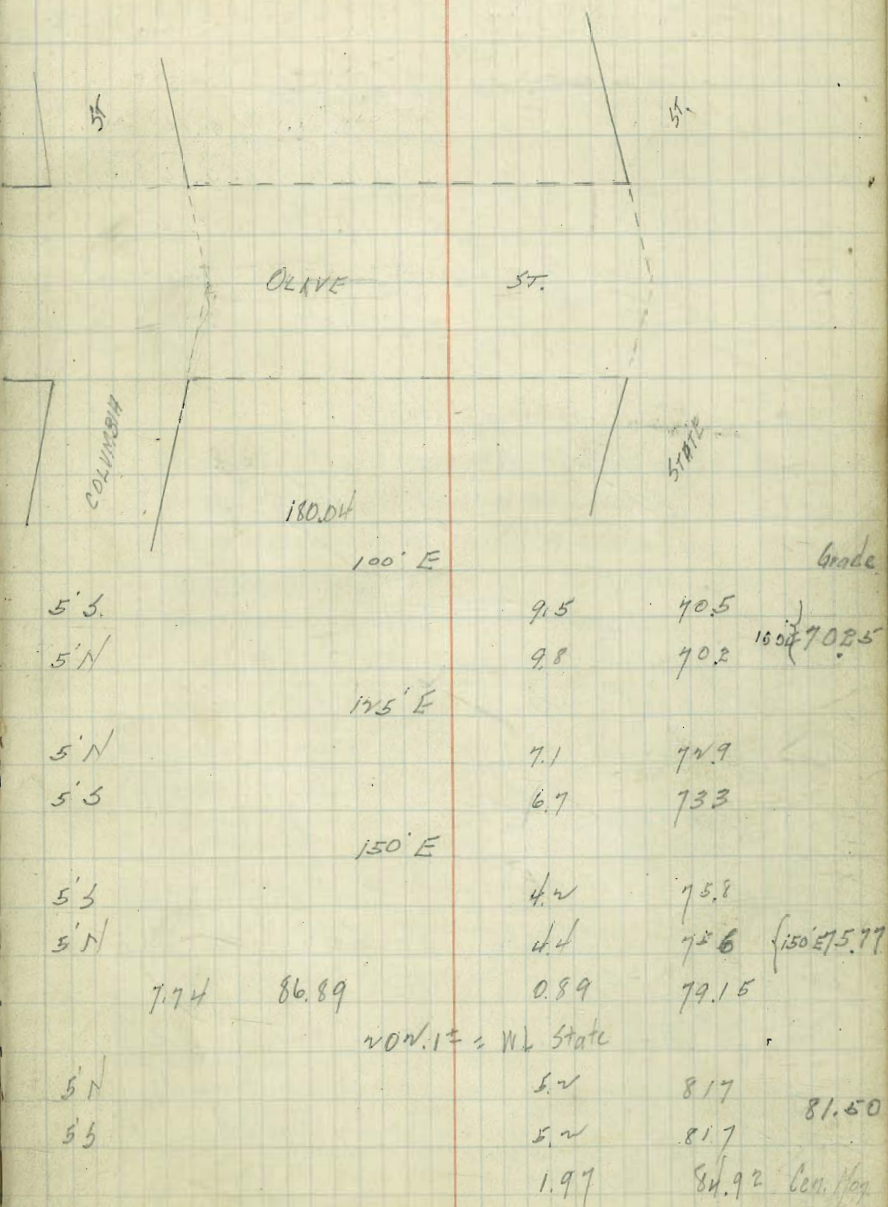 ST ST.
OLAVE ST.
COLUMBIA STATE
180.04
100' E Grade
5' S. 9.5 70.5
5' N 9.8 70.2 100'E 70.25
125' E
5' N 7.1 72.9
5' S 6.7 73.3
150' E
5' S 4.2 75.8
5' N 4.4 75.6 150'E 75.77
7.74 86.89 0.89 79.15
202.1± = WL State
5' N 5.2 81.7
81.50
5' S 5.2 81.7
1.97 84.92 Cen. Mon.